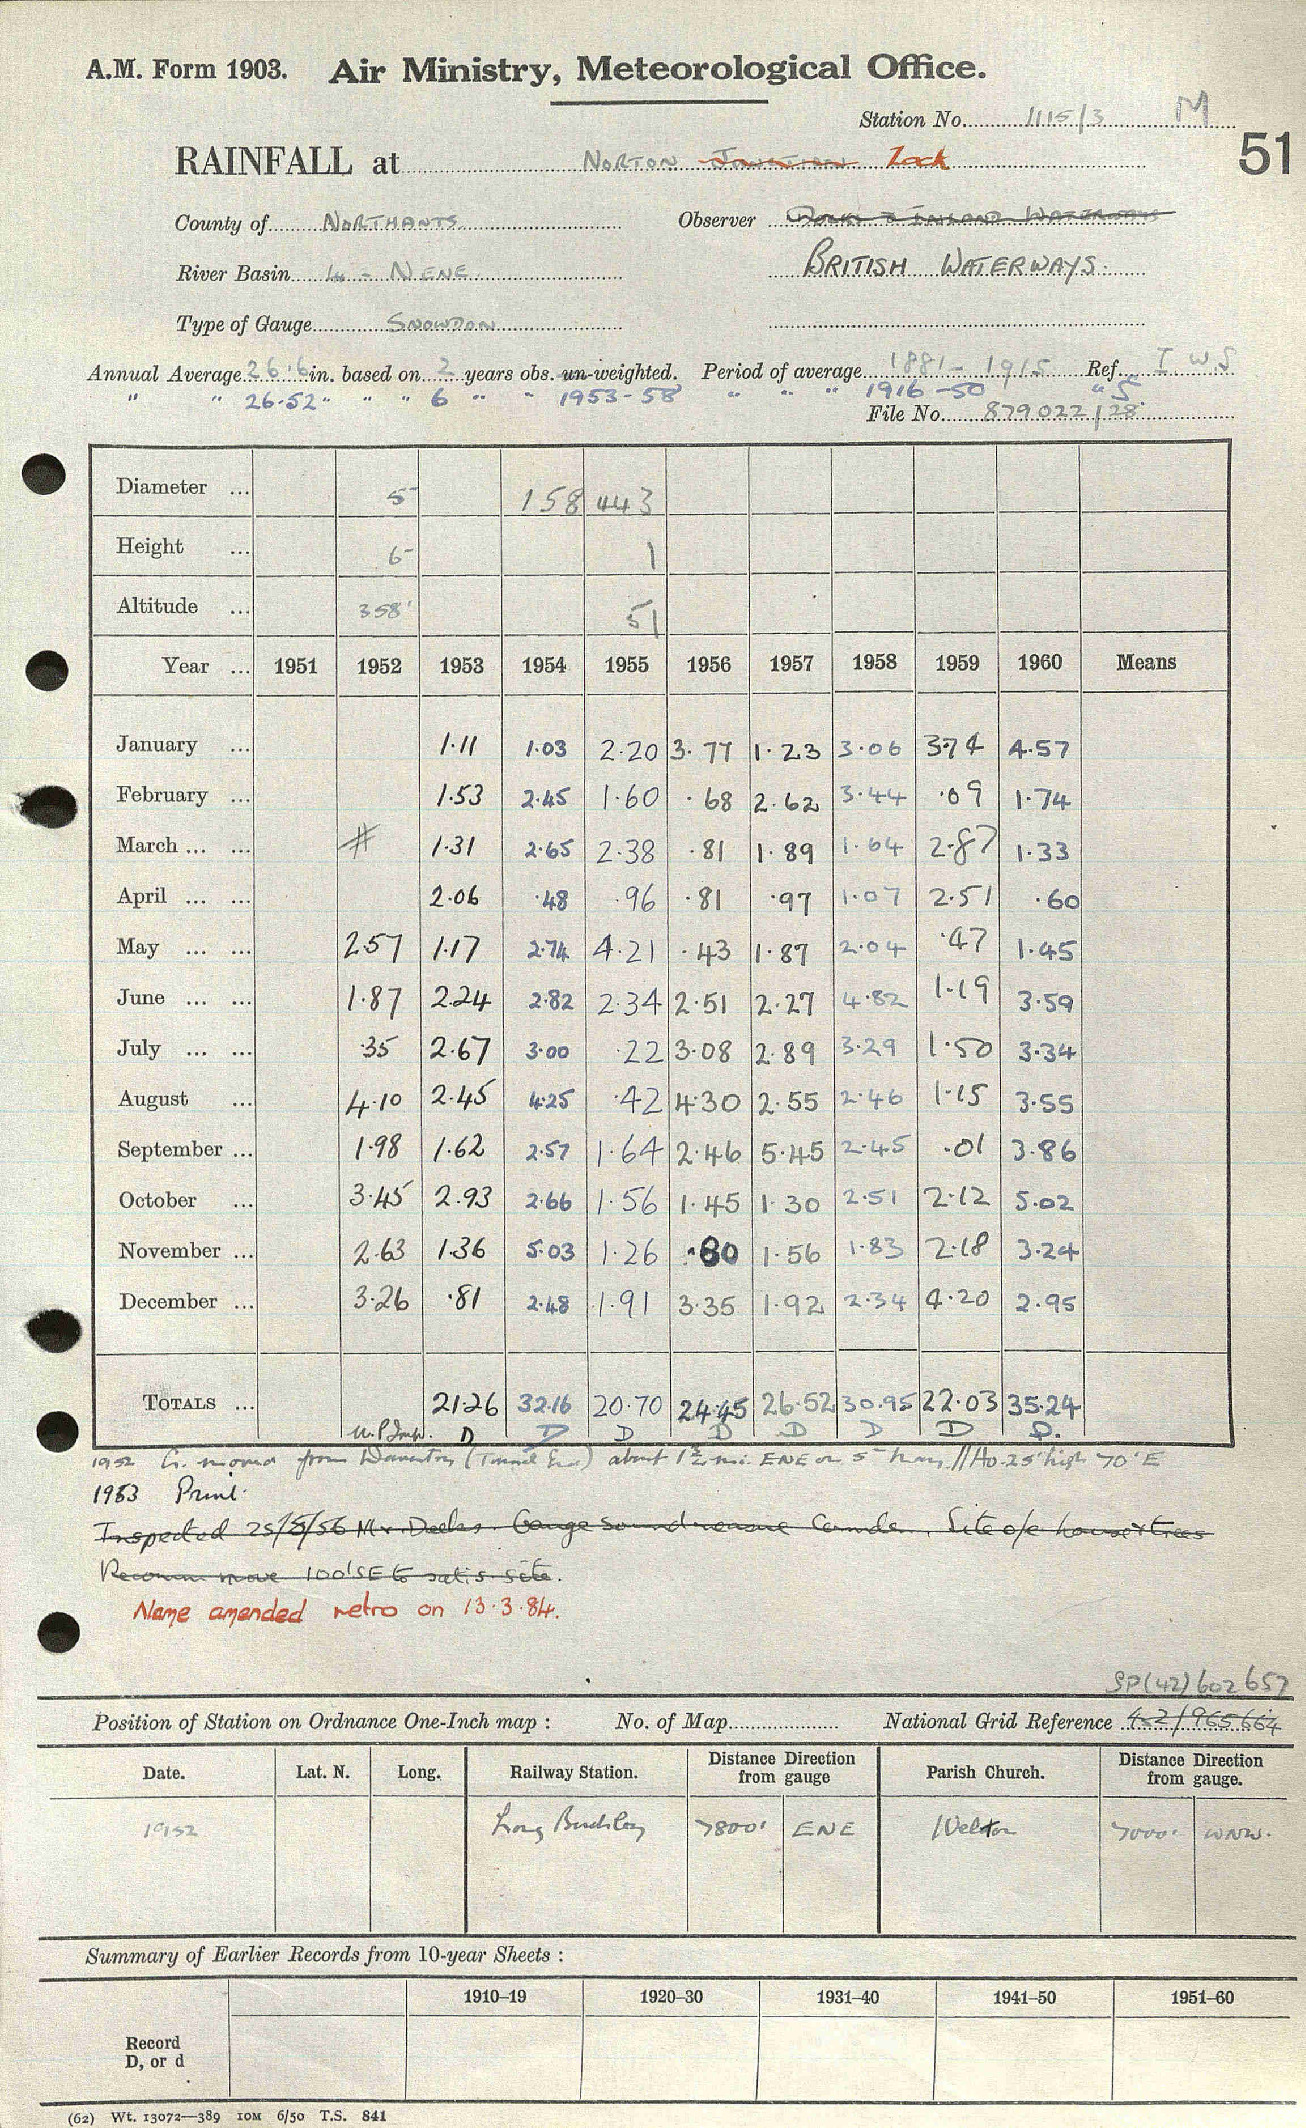 A.M. Form 1903. Air Ministry, Meteorological Office.
Station No. 1115/3 M
51
RAINFALL at Norton Junction Lock
County of Northants Observer Docks & Inland Waterways
River Basin Nene British Waterways.
Type of Gauge Snowdon
Annual Average 26.6 in. based on 2 years obs. un-weighted. Period of average 1881-1915 Ref. I W S
" " 26.52 " " " 6 " " 1953-58 " " " 1916-50 " 5.
File No. 879022/28
Diameter ... 5 158 443
Height ... 6 1
Altitude ... 358' 51
Year ... 1951 1952 1953 1954 1955 1956 1957 1958 1959 1960 Means
January ... 1.11 1.03 2.20 3.77 1.23 3.06 3.74 4.57
February ... 1.53 2.45 1.60 .68 2.62 3.44 .09 1.74
March ... ... # 1.31 2.65 2.38 .81 1.89 1.64 2.87 1.33
April ... ... 2.06 .48 .96 .81 .97 1.07 2.51 .60
May ... ... 2.57 1.17 2.74 4.21 .43 1.87 2.04 .47 1.45
June ... ... 1.87 2.24 2.82 2.34 2.51 2.27 4.82 1.19 3.59
July ... ... .35 2.67 3.00 .22 3.08 2.89 3.29 1.50 3.34
August ... 4.10 2.45 4.25 .42 4.30 2.55 2.46 1.15 3.55
September ... 1.98 1.62 2.57 1.64 2.46 5.45 2.45 .01 3.86
October ... 3.45 2.93 2.66 1.56 1.45 1.30 2.51 2.12 5.02
November ... 2.63 1.36 5.03 1.26 .80 1.56 1.83 2.18 3.24
December ... 3.26 .81 2.48 1.91 3.35 1.92 2.34 4.20 2.95
Totals ... 21.26 32.16 20.70 24.45 26.52 30.95 22.03 35.24
D D D D D D D D.
1952 G. moved from Daventry (Tunnel End) about 1½ mi. ENE on 5 Ho. 25' high 70' E
1953 Print.
Inspected 25/5/56 Mr Gauge sound Site o/e house & trees
Recomm move 100' SE to satis. site.
Name amended retro on 13.3.84.
SP(42) 602 657
Position of Station on Ordnance One-Inch map : No. of Map National Grid Reference 42/965664
Date. Lat. N. Long. Railway Station. Distance Direction from gauge Parish Church. Distance Direction from gauge.
1952 Long Buckby 7800' ENE Welton 7000' WNW.
Summary of Earlier Records from 10-year Sheets :
1910–19 1920–30 1931–40 1941–50 1951–60
Record
D, or d
(62) Wt. 13072—389 10M 6/50 T.S. 841